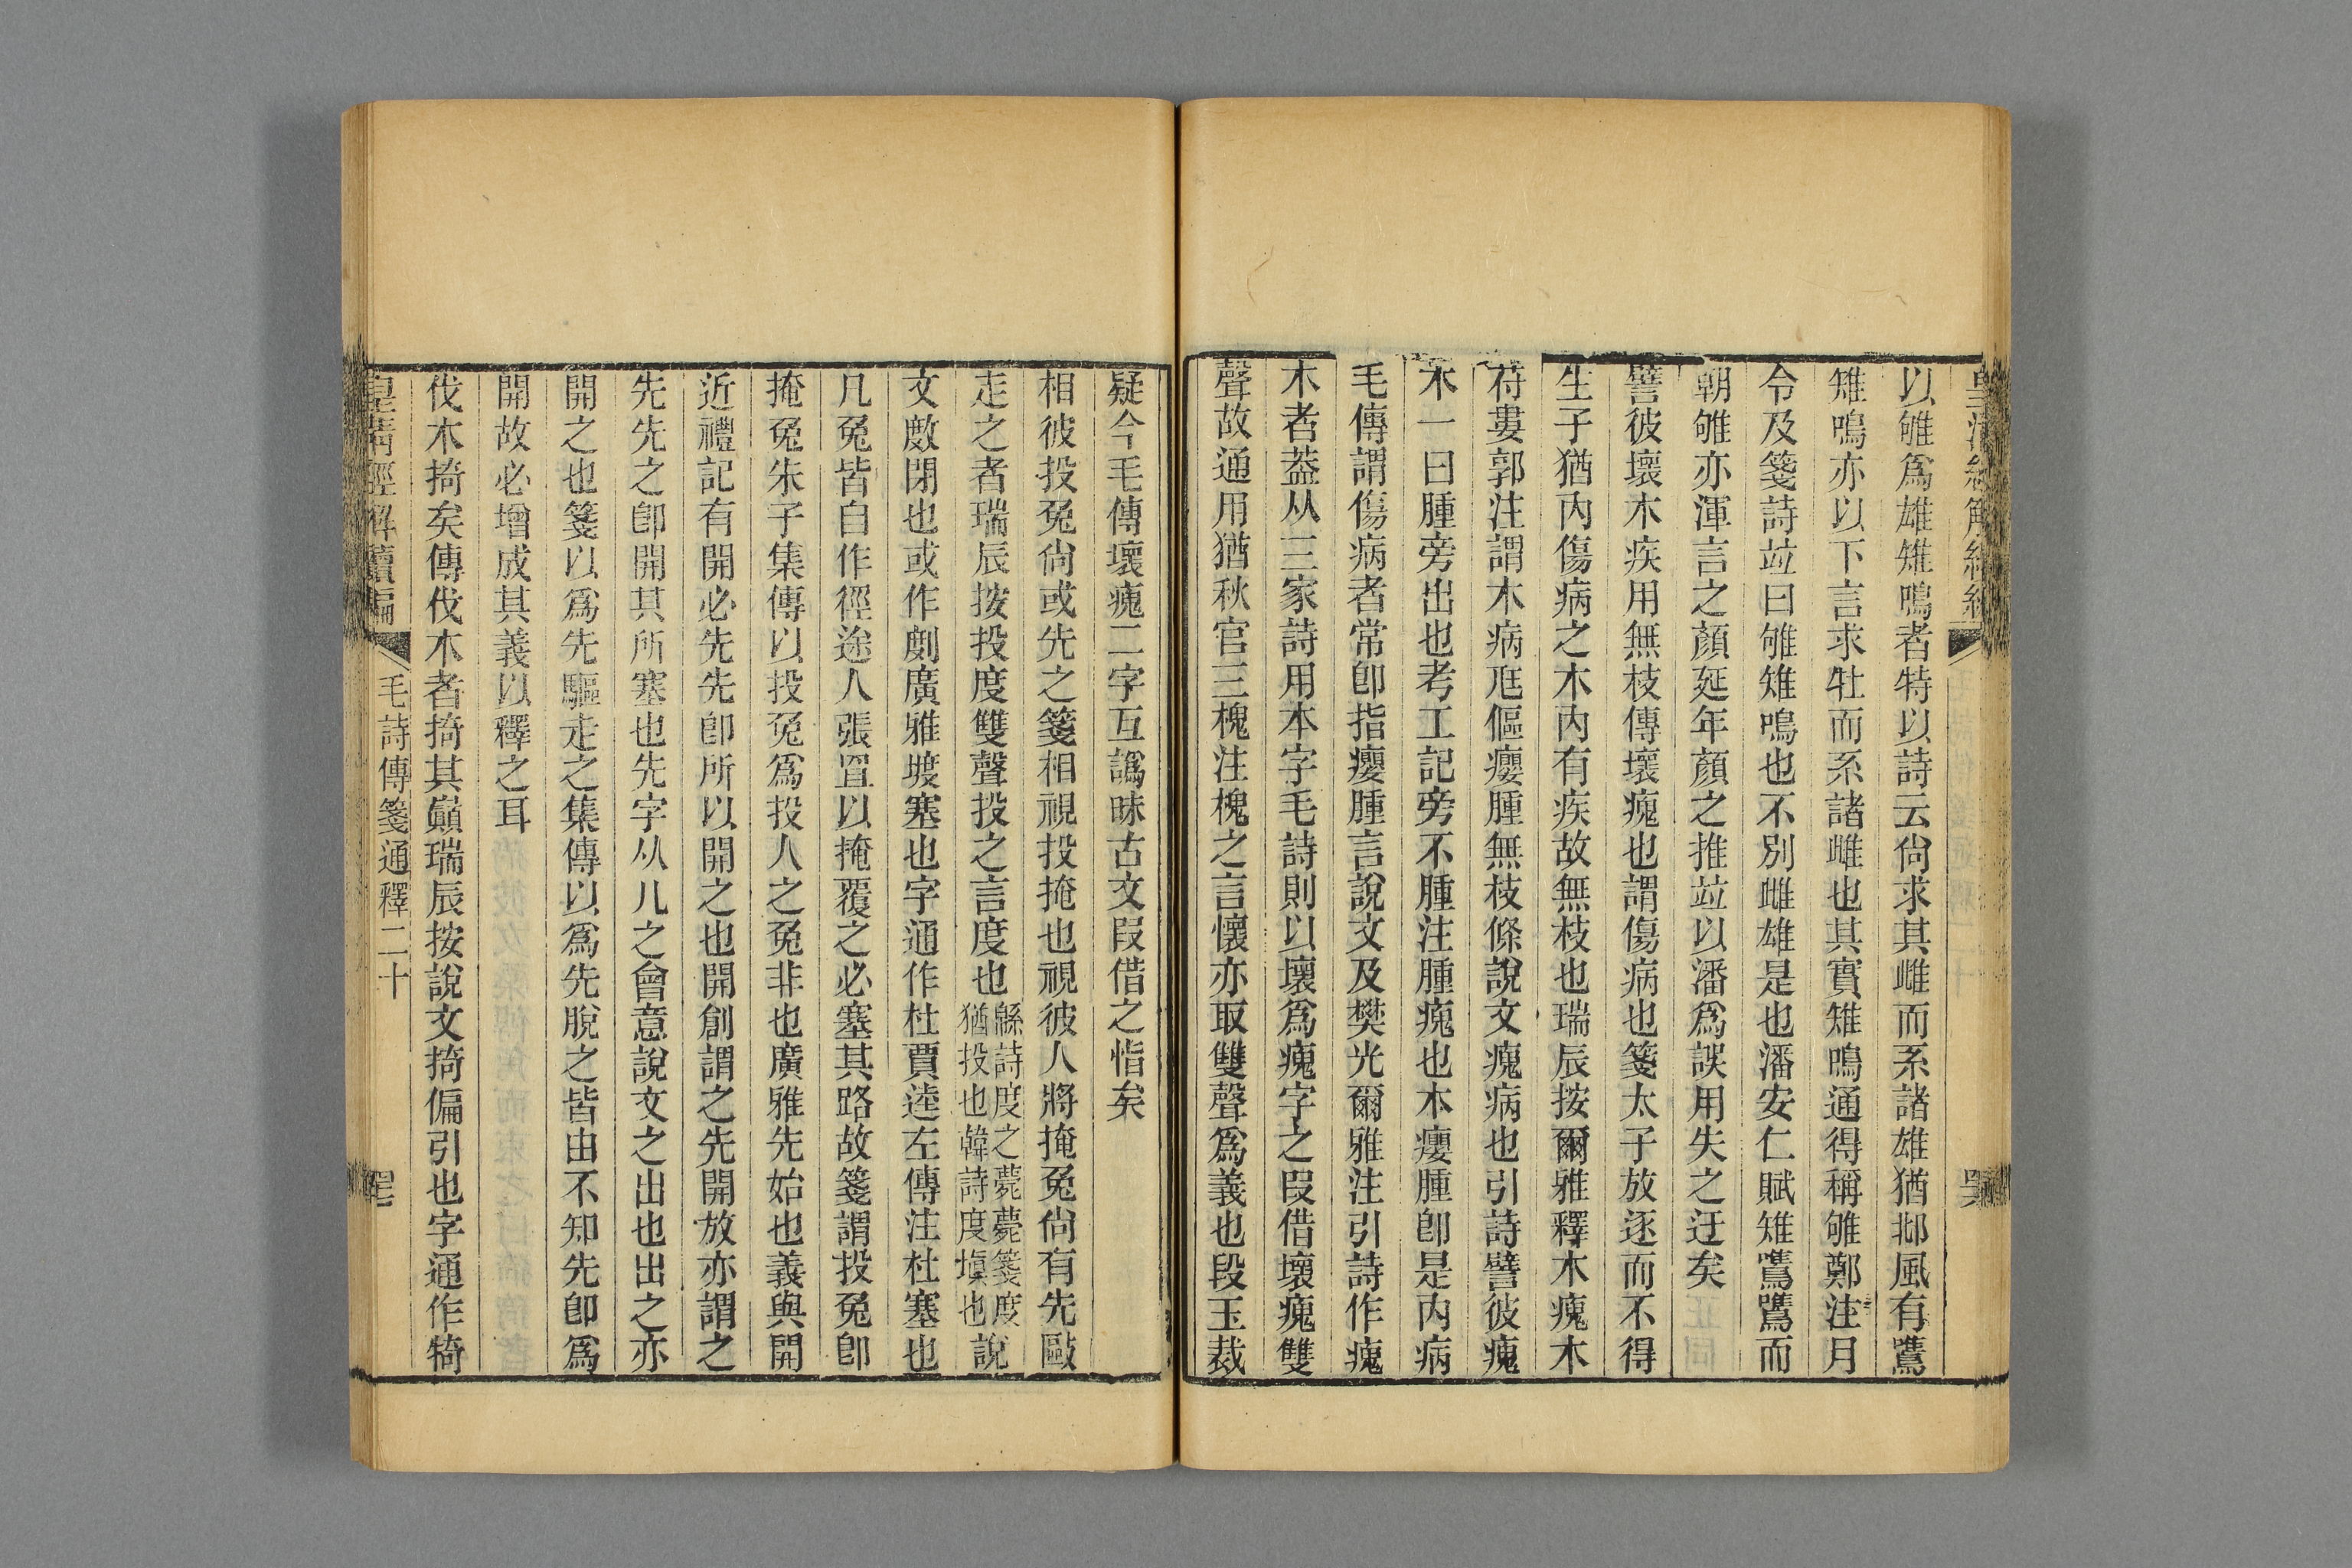 以雊爲雄雉鳴者特以詩云尙求其雌而系諸雄猶邶風有鷕
雉鳴亦以下言求牡而系諸雌也其實雉鳴通得稱雊鄭注月
令及箋詩竝曰雊雉鳴也不別雌雄是也潘安仁賦雉鷕鷕而
朝雊亦渾言之顏延年顏之推竝以潘爲誤用失之迂矣
譬彼壞木疾用無枝傳壞瘣也謂傷病也箋太子放逐而不得
生子猶內傷病之木內有疾故無枝也瑞辰按爾雅釋木瘣木
苻婁郭注謂木病尫傴癭腫無枝條說文瘣病也引詩譬彼瘣
木一曰腫旁出也考工記旁不腫注腫瘣也木癭腫卽是內病
毛傳謂傷病者常卽指癭腫言說文及樊光爾雅注引詩作瘣
木者葢从三家詩用本字毛詩則以壞爲瘣字之叚借壞瘣雙
聲故通用猶秋官三槐注槐之言懷亦取雙聲爲義也段玉裁
疑今毛傳壞瘣二字互譌昧古文叚借之恉矣
相彼投兔尙或先之箋相視投掩也視彼人將掩兔尙有先毆
走之者瑞辰按投度雙聲投之言度也緜詩度之薨薨箋度猶投也韓詩度塡也說
文㪉閉也或作剫廣雅㡯塞也字通作杜賈逵左傳注杜塞也
凡兔皆自作徑途人張罝以掩覆之必塞其路故箋謂投兔卽
掩兔朱子集傳以投兔爲投人之兔非也廣雅先始也義與開
近禮記有開必先先卽所以開之也開創謂之先開放亦謂之
先先之卽開其所塞也先字从儿之會意說文之出也出之亦
開之也箋以爲先驅走之集傳以爲先脫之皆由不知先卽爲
開故必增成其義以釋之耳
伐木掎矣傳伐木者掎其巔瑞辰按說文掎偏引也字通作犄
皇淸經解續編 毛詩傳箋通釋二十